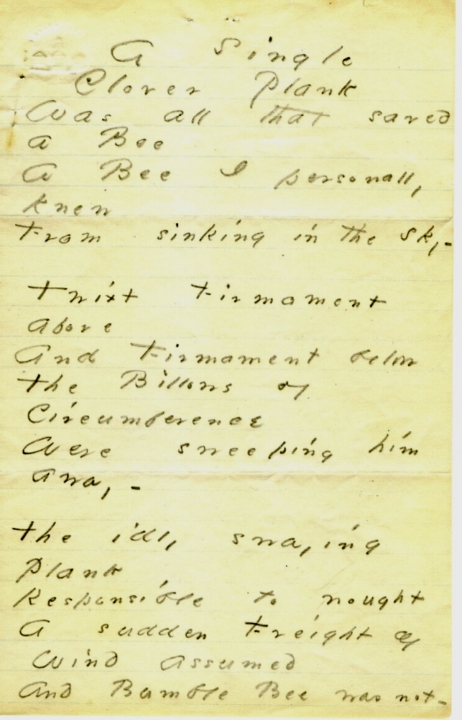 A Single
Clover Plank
Was all that saved
a Bee
A Bee I personally
knew
From sinking in the sky -
Twixt Firmament
above
And Firmament below
The Billows of
Circumference
Were sweeping him
away -
The idly swaying
Plank
Responsible to nought
A sudden Freight of
Wind assumed
And Bumble Bee was not -